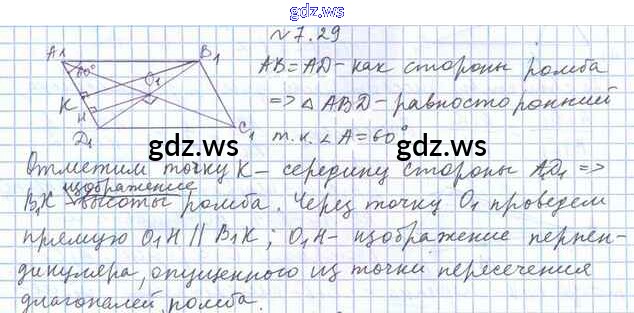 gdz.ws
№7.29
A1 B1
60°
O1
K
H
D1 C1
AB=AD-как стороны ромба
=> △ ABD-равносторонний
т.к. ∠A=60°
gdz.ws gdz.ws
Отметим точку K - середину стороны AD1 =>
изображение
B1K - высоты ромба. Через точку O1 проведем
прямую O1H || B1K; O1H- изображение перпен-
дикуляра, опущенного из точки пересечения
диагоналей ромба.
gdz.ws